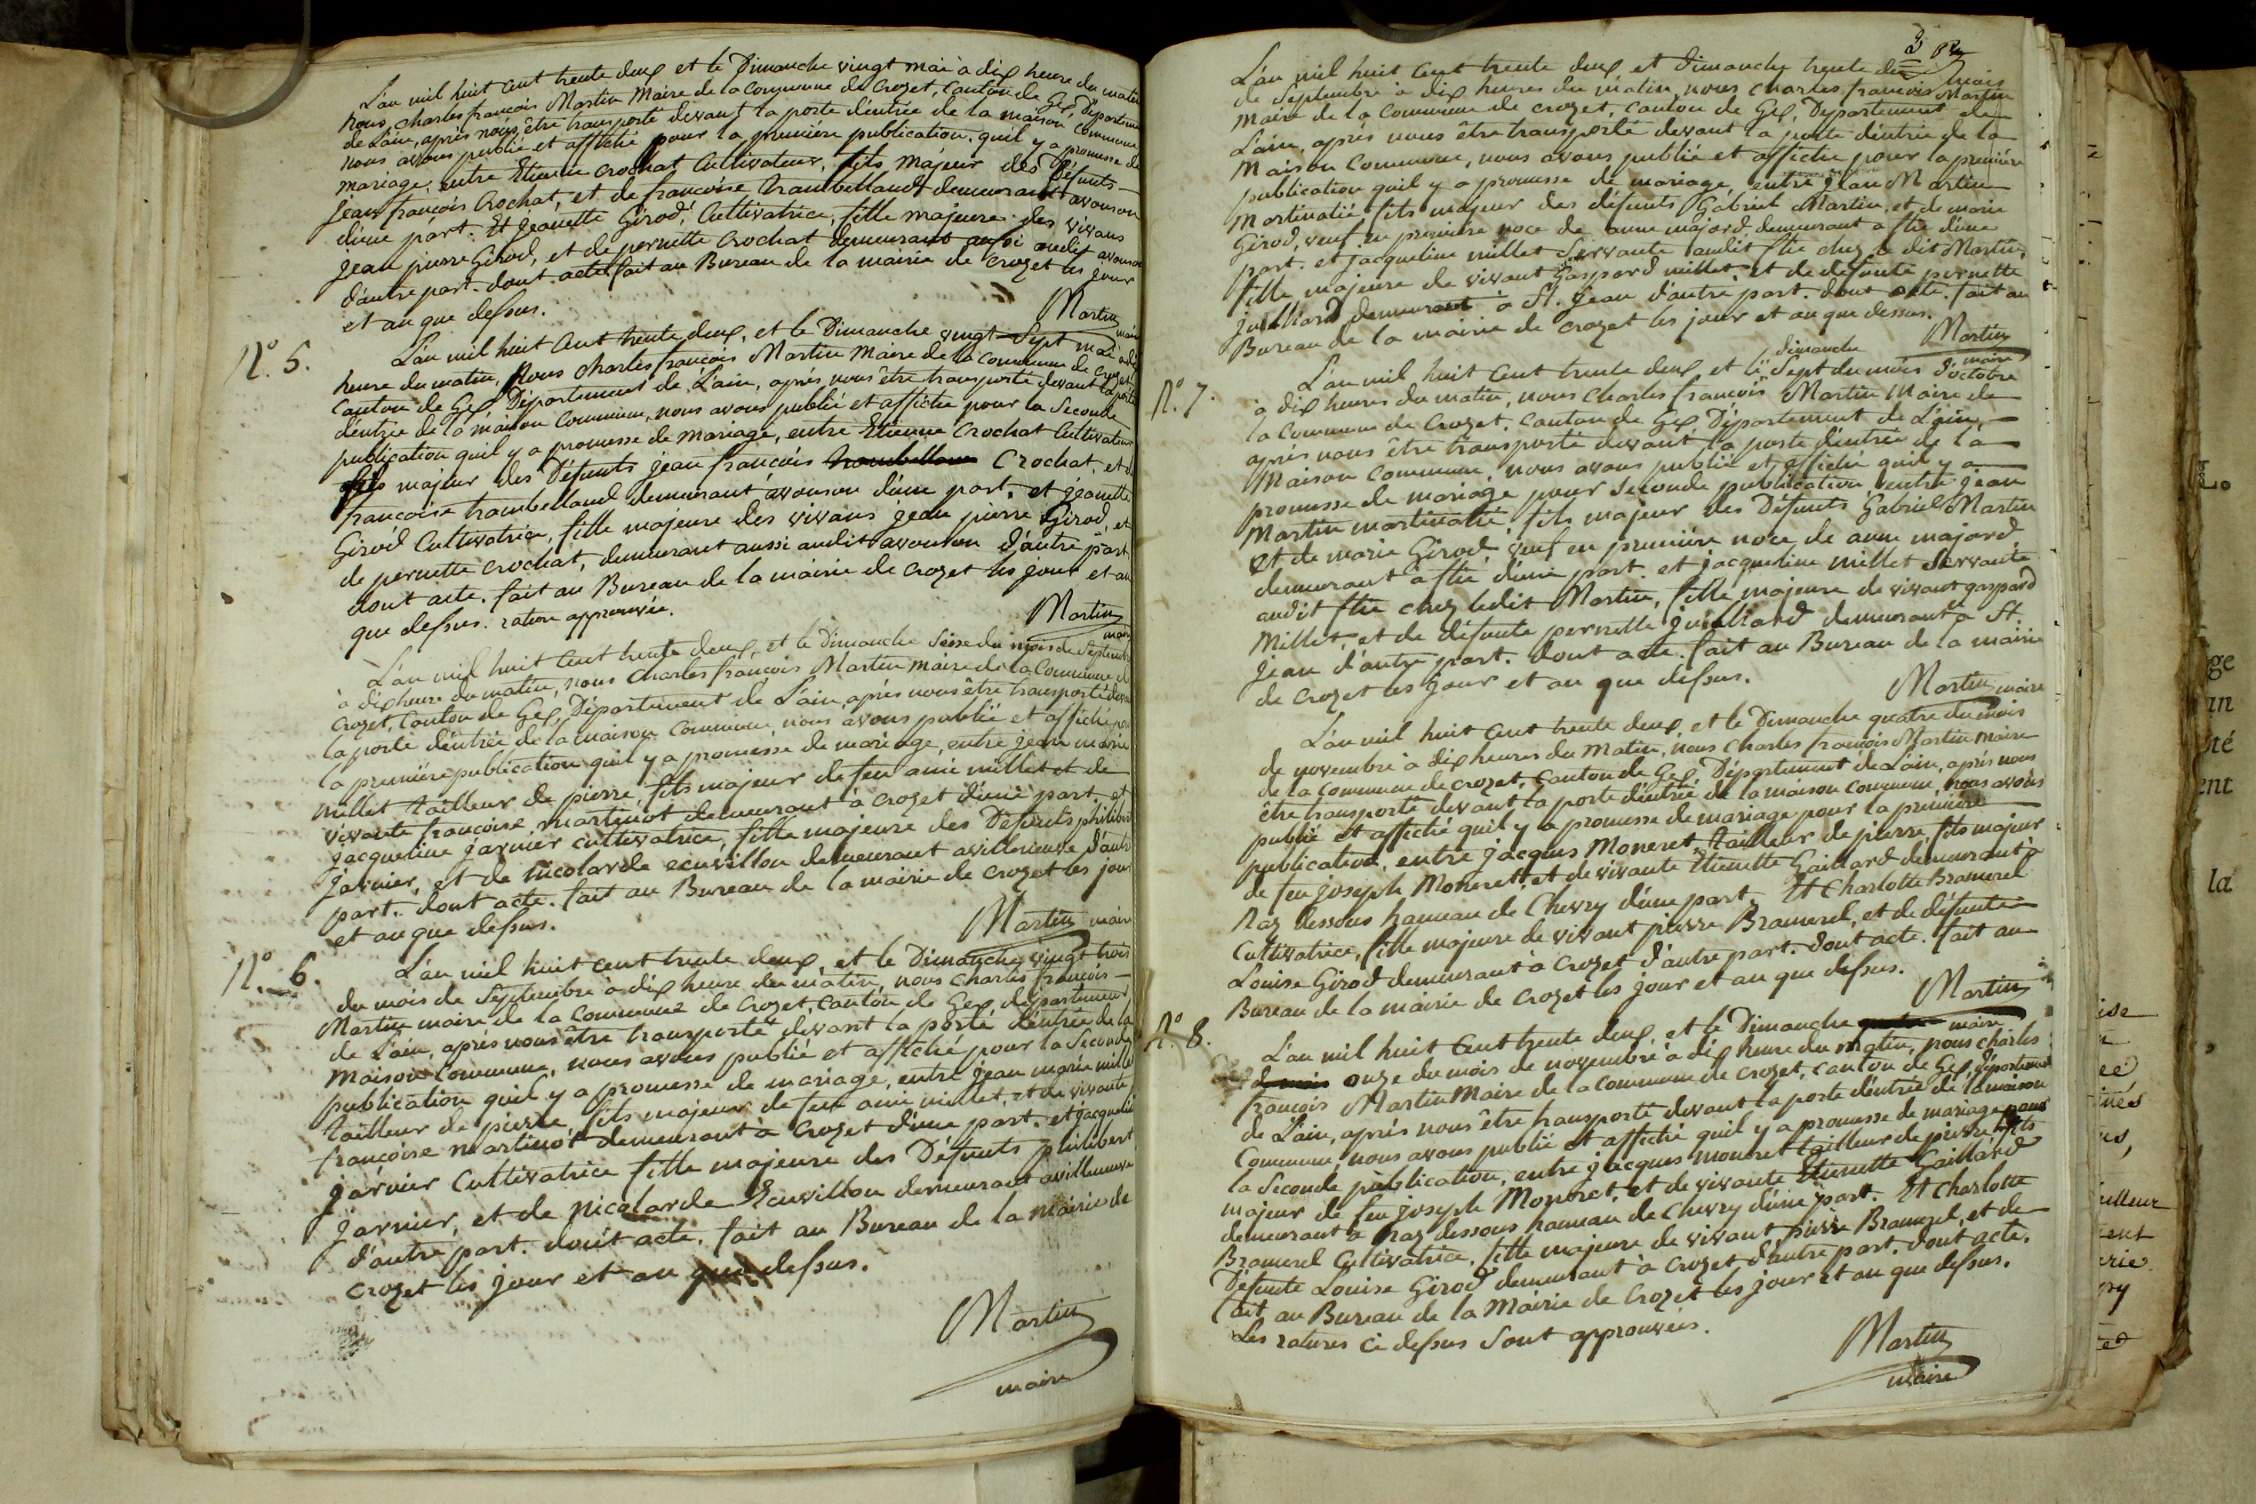 L'an mil huit cent trente deux et le Dimanche vingt mai à dix heure du matin
Nous charles françois Martin Maire de la commune de Crozet, Canton de Gex, Département
de L'ain, après nous être transporté devant la porte d'entrée de la maison commune
nous avons publié et affiché pour la première publication. quil y a promesse de
mariage, entre Etienne crochat Cultivateur, fils majeur des Défunts
jean françois Crochat, et de françoise trambelland demeurant avouson
d'une part. Et jeanette Girod, Cultivatrice, fille majeure des vivans
jean pierre Girod, et de pernette Crochat demeurant aussi audit avouson
d'autre part. dont acte fait au Bureau de la mairie de Crozet les jour
et an que dessus.
Martin
maire
N.° 5. L'an mil huit cent trente deux, et le Dimanche vingt Sept mai à dix
heure du matin, Nous charles françois Martin Maire de la commune de Crozet
Canton de Gex Département de L'ain, après nous être transporté devant la porte
d'entrée de la maison commune, nous avons publié et affiché pour la Seconde
publication quil y a promesse de mariage, entre Etienne Crochat Cultivateur
fils majeur des Défunts jean françois trambelland Crochat, et de
françoise trambelland demeurant avouson d'une part, et jeanette
Girod Cultivatrice, fille majeure des vivans jean pierre Girod, et
de pernette Crochat, demeurant aussi audit avouson d'autre part
dont acte. fait au Bureau de la mairie de Crozet les jour et an
que dessus. rature approuvée.
Martin
maire
L'an mil huit cent trente deux, et le Dimanche Seise du mois de Septembre
à dix heure du matin, nous Charles françois Martin maire de la Commune de
Crozet, Canton de Gex, Département de L'ain, après nous être transporté devant
la porte d'entrée de la maison commune, nous avons publié et affiché pour
la première publication quil y a promesse de mariage, entre jean marie
millet tailleur de pierre, fils majeur de feu ami millet et de
vivante françoise martinot demeurant à Crozet d'une part, et
jacqueline jarnier cultivatrice, fille majeure des Défunts philibert
jarnier, et de nicolarde ecuvillon demeurant avilleneuve d'autre
part. dont acte. fait au Bureau de la mairie de crozet les jour
et an que dessus.
Martin maire
N.° 6. L'an mil huit cent trente deux, et le Dimanche vingt trois
du mois de Septembre à dix heure du matin, nous Charles françois
Martin maire de la commune de Crozet, Canton de Gex département
de L'ain, après nous être transporté devant la porte d'entrée de la
maison commune, nous avons publié et affiché pour la Seconde
publication quil y a promesse de mariage, entre jean marie millet
tailleur de pierre, fils majeur de feu ami millet, et de vivante
françoise martinot demeurant à Crozet d'une part, et jacqueline
jarnier Cultivatrice fille majeure des Défunts philibert
jarnier, et de nicolarde Ecuvillon demeurant avilleneuve
d'autre part. dont acte. fait au Bureau de la mairie de
crozet les jour et an que dessus.
Martin
maire
3
L'an mil huit cent trente deux et dimanche trente du mois
de Septembre à dix heures du matin, nous charles françois Martin
maire de la Commune de crozet, canton de Gex, Département de
L'ain, après nous être transporté devant la porte d'entrée de la
maison commune, nous avons publié et affiché pour la première
publication quil y a promesse de mariage, entre jean Martin
martinatié fils majeur des défunts Gabriel Martin, et de marie
Girod, veuf en première noce de anne majord, demeurant a flié d'une
part. et jacqueline millet Servante audit flié chez le dit Martin,
fille majeure de vivant Gaspard millet, et de défunte pernette
juilliard demeurant à St. jean d'autre part. dont acte. fait au
Bureau de la mairie de Crozet les jour et an que dessus.
Martin
maire
N.° 7. L'an mil huit cent trente deux, et le dimanche Sept du mois d'octobre
à dix heures du matin, nous Charles françois Martin Maire de
la Commune de Crozet, Canton de Gex Département de L'ain,
après nous être transporté devant la porte d'entrée de la
maison commune, nous avons publié et affiché quil y a
promesse de mariage pour Seconde publication, entre jean
Martin martinatié, fils majeur des Défunts Gabriel Martin
et de marie Girod veuf en première noce de anne majord
demeurant à flié d'une part. et jacqueline millet Servante
audit flié chez ledit Martin, fille majeure de vivant gaspard
Millet, et de défunte pernette juilliard demeurant à St.
jean d'autre part. dont acte. fait au Bureau de la mairie
de crozet les jour et an que dessus.
Martin maire
L'an mil huit cent trente deux, et le Dimanche quatre du mois
de novembre à dix heures du matin, nous Charles françois Martin maire
de la Commune de crozet, Canton de Gex, Département de Lain, après nous
être transporté devant la porte d'entrée de la maison commune, nous avons
publié et affiché quil y a promesse de mariage pour la première
publication, entre jacques Moneret, tailleur de pierre, fils majeur
de feu joseph Moneret, et de vivante Etienette Gaillard demeurant à
Naz dessous hameau de Chevry d'une part, Et Charlotte Bramerel
Cultivatrice, fille majeure de vivant pierre Bramerel, et de défunte
Louise Girod demeurant à Crozet d'autre part. dont acte. fait au
Bureau de la mairie de Crozet les jour et an que dessus.
Martin
maire
N.° 8. L'an mil huit cent trente deux, et le Dimanche quatre
du mois onze du mois de novembre à dix heure du matin, nous charles
françois Martin Maire de la commune de Crozet, canton de Gex, département
de L'ain, après nous être transporté devant la porte d'entrée de la maison
Commune, nous avons publié et affiché quil y a promesse de mariage pour
la Seconde publication, entre jacques moneret tailleur de pierre fils
majeur de feu joseph Moneret, et de vivante Etienette Gaillard
demeurant à Naz dessous hameau de Chevry d'une part. Et Charlotte
Bramerel Cultivatrice, fille majeure de vivant pierre Bramerel, et de
Défunte Louise Girod demeurant à Crozet, d'autre part. dont acte.
fait au Bureau de la Mairie de Crozet les jour et an que dessus.
Les ratures ci dessus Sont approuvées.
Martin
maire